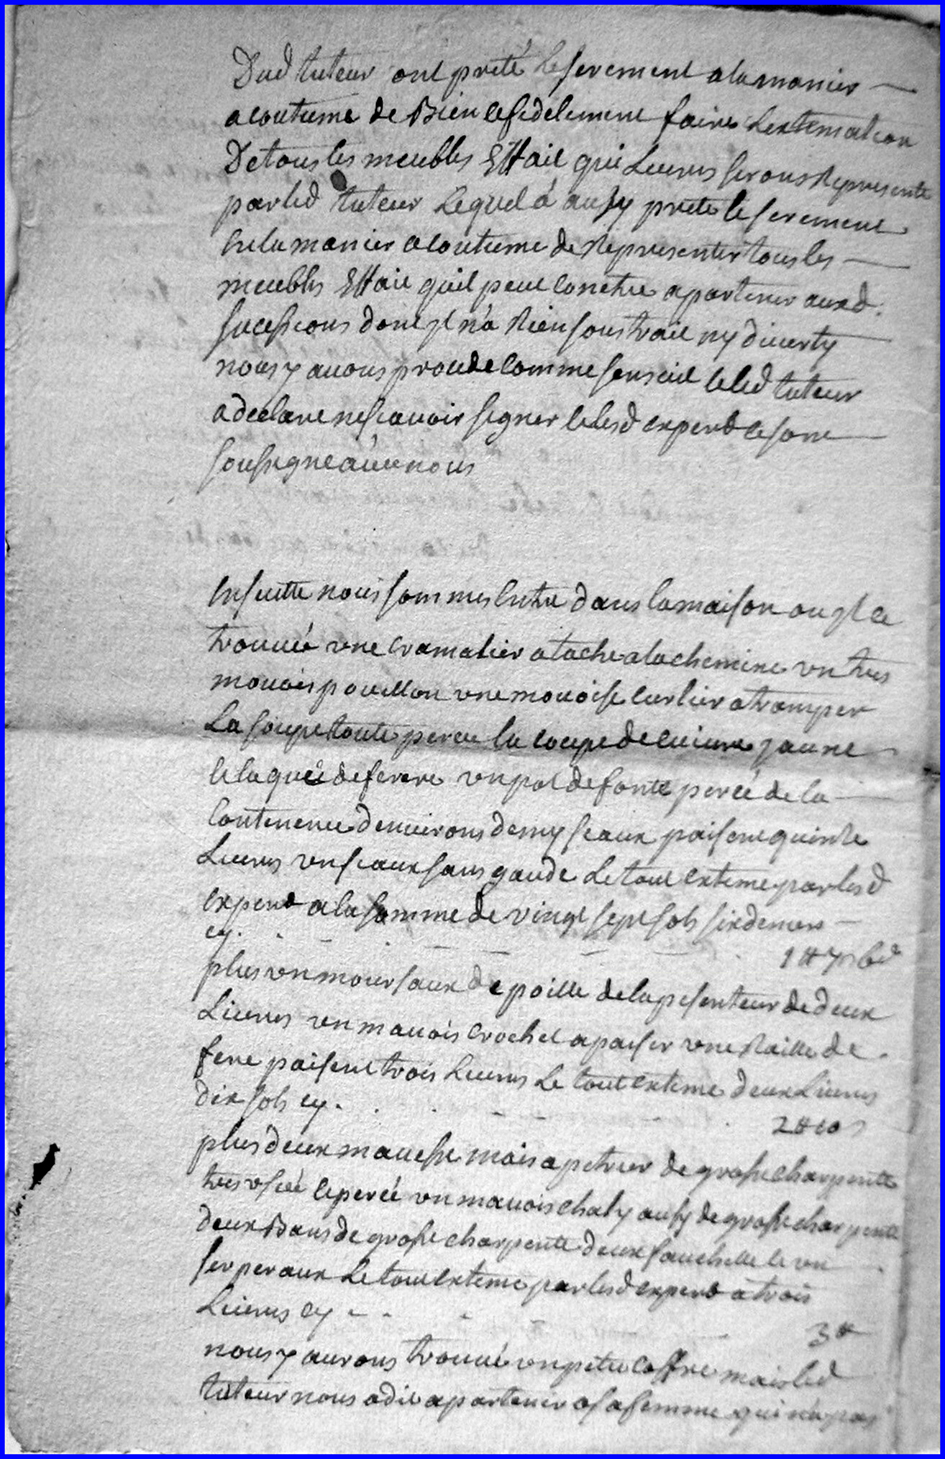 Dud tuteur ont preté le serement a la manier
acoutume de Bien et fidelement faire Lextemation
De tous les meubles Effait qui Leurs seront Represente
par led tuteur Lequel á aussy prete le serement
En la manier acoutume de Representer tous les
meubles Effait quil peut conetre apartener aux d.
sucessions dont yl n'a Rien soustrait ny diverty
nous y avons procede comme sensuit et led tuteur
a declare ne scavoir signer et lesd expert ce sont
soussigne avec nous
Ensuitte nous sommes Entre dans la maison ou yl ce
trouvé une cramalier atache a la chemine un tres
mauvais une mauvoise a tramper
La soupe toute percee la coupe de cuivre jaune
et la queé de ferre un pot de fonte percée de la
Contenence denvirons demy seaux paisent quinze
Livres un seaux sans gaude Le tout exteme par les d
expert a la somme de vingt sept sols six deniers
cy. 1# 7s 6d
plus un mourseaux de poille de la pesenteur de deux
Livres un mauvois crochet a paiser une Raille de
fere paisent trois Livres Le tout exteme deux Livres
dix sols cy. 2# 10s
plus deux mauvesse mais a petrier de grosse charpente
tres usée et percé un mauvois chaly aussy de grosse charpente
deux Bans de grosse charpente deux fauchelle et un
serperaux Le tout exteme par les d expert a trois
Livres cy 3#
nous y avons trouvé un petit coffre mais led
tuteur nous a dit apartenir a sa femme qui n'a pas